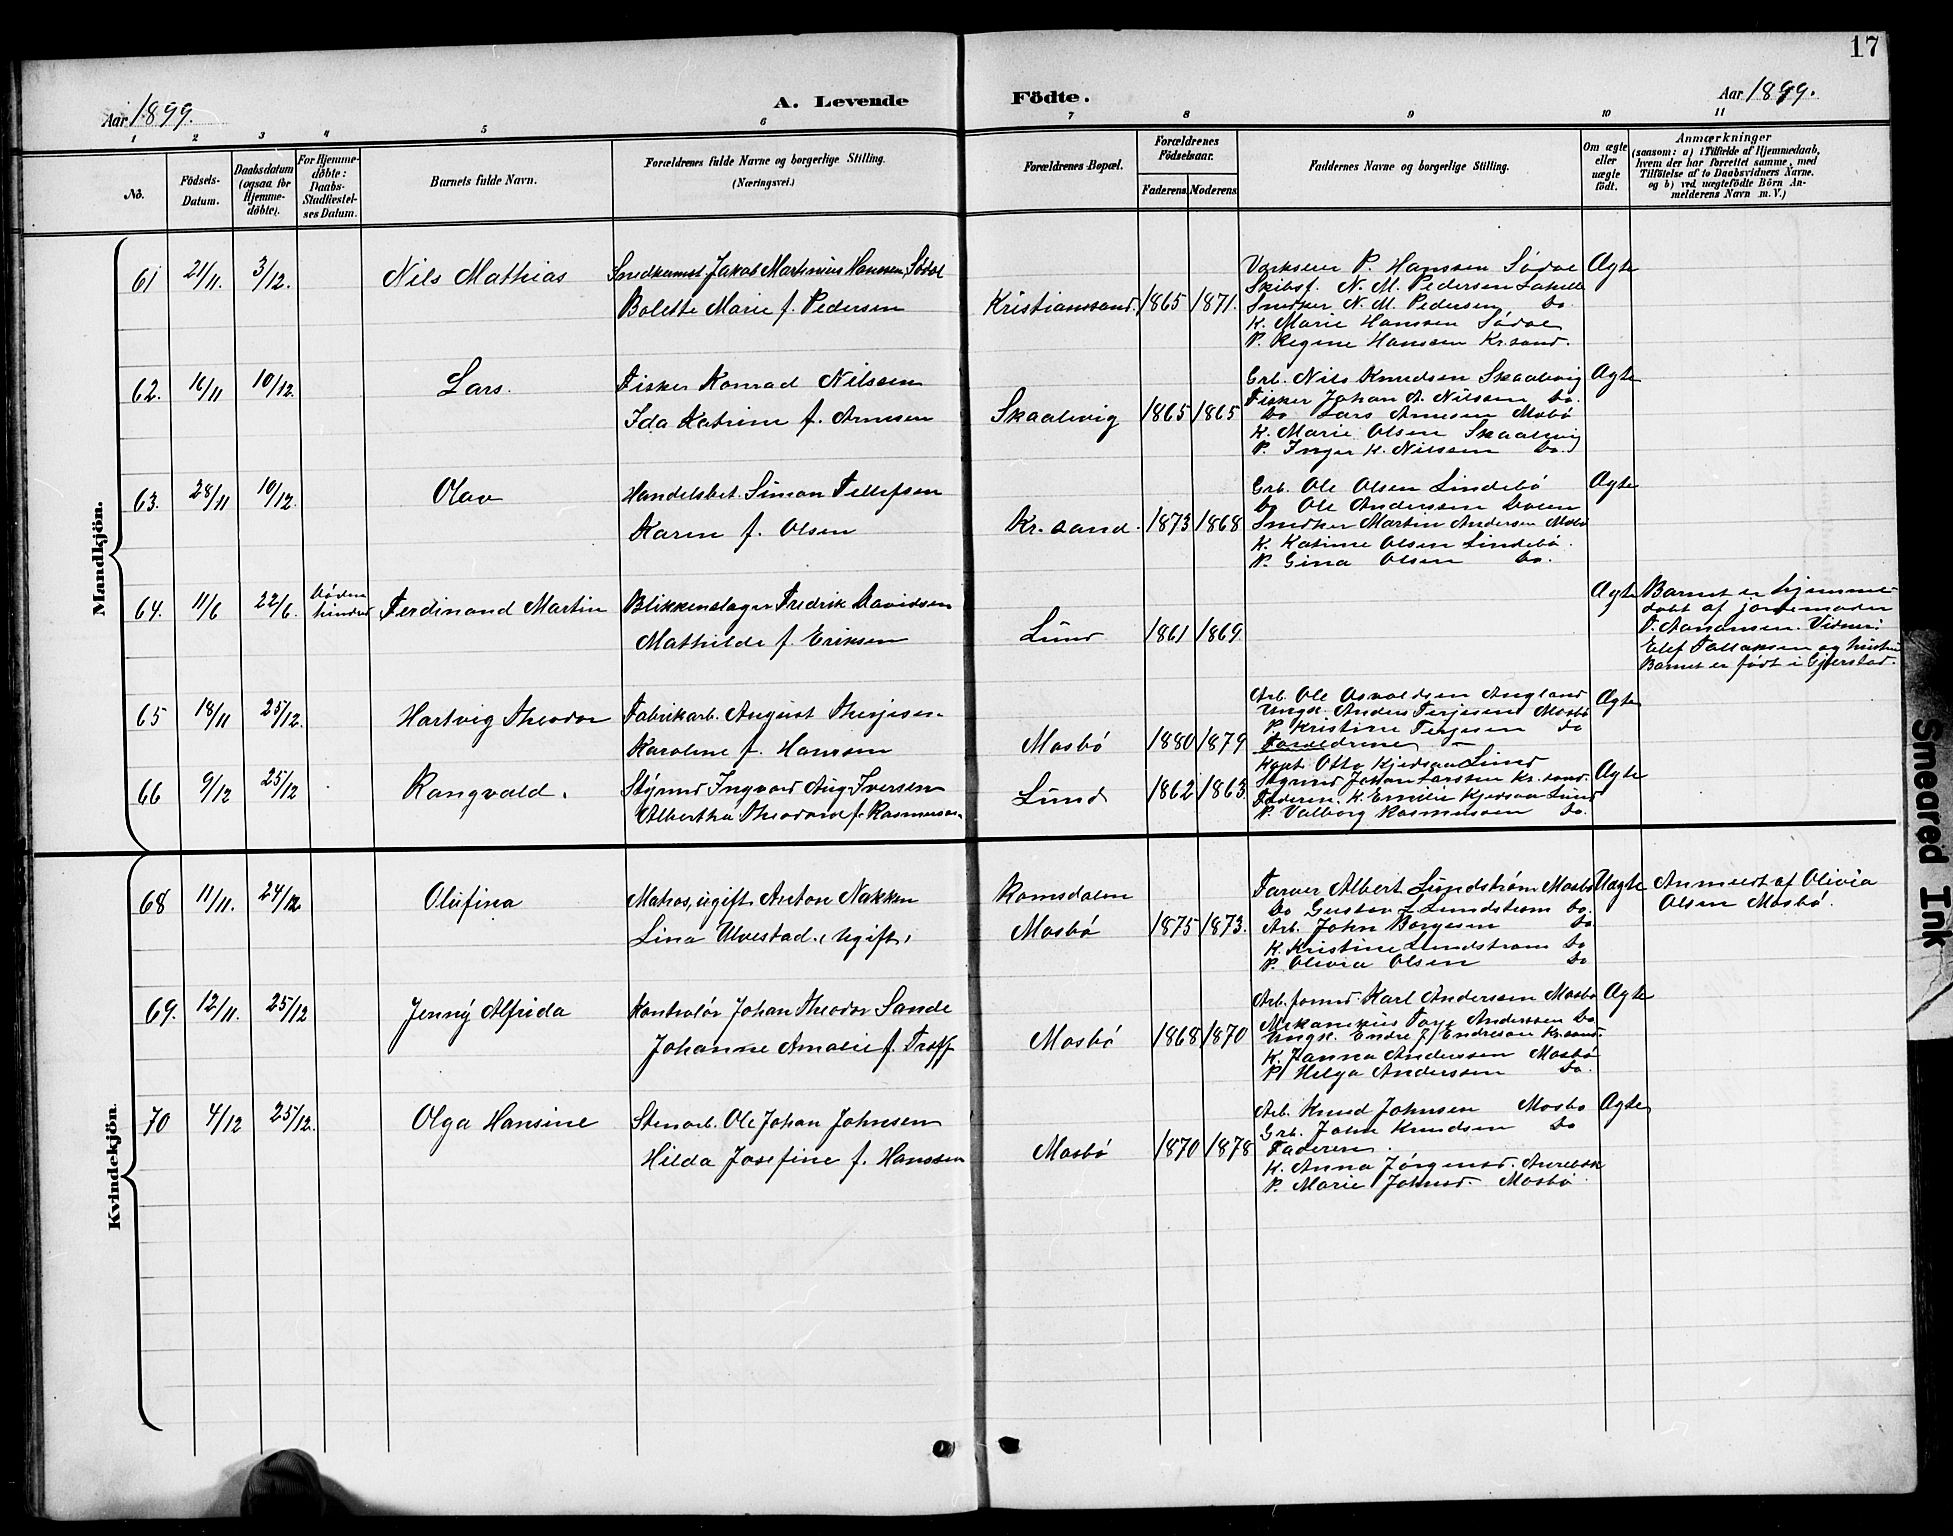 17
Aar 1899.
A. Levende Födte.
Aar 1899.
1 2 3 4 5 6 7 8 9 10 11
No.
Födsels-Datum.
Daabsdatum (ogsaa for Hjemme-döbte).
For Hjemme-döbte: Daabs-Stadfæstel-ses Datum.
Barnets fulde Navn.
Forældrenes fulde Navne og borgerlige Stilling.
(Næringsvei.)
Forældrenes Bopæl.
Forældrenes Födselsaar.
Faderens. Moderens.
Faddernes Navne og borgerlige Stilling.
Om ægte eller uægte födt.
Anmærkninger
(saasom: a) i Tilfælde af Hjemmedaab,
hvem der har forrettet samme, med
Tilföielse af to Daabsvidners Navne.
og b) ved uægtefödte Börn An-
melderens Navn m. V.)
Mandkjön.
61 21/11. 3/12. Nils Mathias
Jakob Martinius Hanssen, Södal
Bolette Marie f. Pedersen
Kristianssand. 1865 1871.
P. Hanssen
Skibsf. N. M. Pedersen
Snedker N. M. Pedersen Do.
K. Marie Hanssen
P. Regine Hanssen Kr.sand.
Ægte
62. 16/11 10/12. Lars.
Fisker Konrad Nilssen
Ida Katrine f. Arnesen
Skaalevig 1865 1865
Grb. Nils Knudsen Skaalevig
Fisker Johan A. Nilssen Do.
Do Lars Arnesen Mosbö
K. Marie Olsen Skaalevig
P. Inger K. Nilssen Do.
Ægte
63. 28/11 10/12. Olav
Handelsbet. Simon Tellefsen
Karen f. Olsen
Kr.sand. 1873 1868
Grb. Ole Olsen Lindebö
Do Ole Anderssen
Snedker Martin Andersen Mosbö
K. Katrine Olsen Lindebö.
P. Gina Olsen Do.
Ægte
64. 11/6 22/6. Döden hindret
Ferdinand Martin
Blikkenslager Fredrik Davidsen
Mathilde f. Eriksen
Lund 1861 1869.
Ægte
Barnet er hjemme-
döbt af jordemoder
T. Aanonsen. Vidner:
Elef Tallaksen og hustru
Barnet er född i Gjerstad.
65 18/11 25/12. Hartvig Theodor
Fabrikarb. August Therjesen
Karoline f. Hanssen
Mosbö 1880 1879
Arb. Ole Osvaldsen Augland
Ungk. Anders Terjesen Mosbö
P. Kristine Terjesen Do
Forældrene –
Ægte
66 9/12 25/12 Rangvald.
Styrmd Ingvald Aug. Iversen
Albertha Theodora f. Rasmussen
Lund 1862 1863
Kapt. Otto Kjedsaa Lund
Styrmd Johan Larssen Kr.sand.
Faderen. K. Emilie Kjedsaa Lund
P. Valborg Rasmussen Do.
Ægte
Kvindekjön.
68 11/11. 24/12 Olufina
Matros, ugift Anton Nakken
Lina Ulvestad, (ugift)
Romsdalen
Mosbö 1875 1873.
Farver Albert Lundström Mosbö
Do Gustav L. Lundström Do.
Arb. John Borgesen Do
K. Kristine Lundström Do
P. Olivia Olsen Do
Uægte
Anmeldt af Olivia
Olsen Mosbö.
69. 12/11. 25/12 Jenny Alfrida
Kontrolör Johan Theodor Sande
Johanne Amalie f. Troff
Mosbö 1868 1870
Arb.formd. Karl Anderssen Mosbö
Mekanikus Anderssen Do
Ungk. Endre J. Endresen Kr.sand.
K. Janna Anderssen Mosbö
P. Helga Anderssen Do.
Ægte
70 4/12 25/12. Olga Hansine
Stenarb. Ole Johan Johnsen
Hilda Josefine f. Hanssen
Mosbö 1870 1878
Arb. Knud Johnsen Mosbö
Grb. John Knudsen Do
Faderen.
K. Anna Jörgensd.
P. Marie Johnsd. Mosbö
Ægte
Smeared Ink